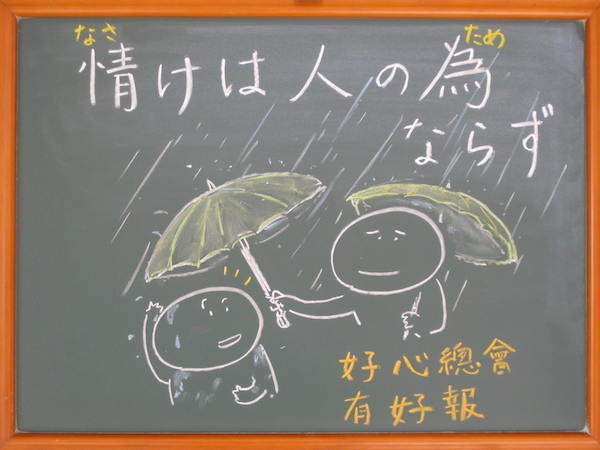 なさ ため
情けは人の為
ならず
好心總會
有好報